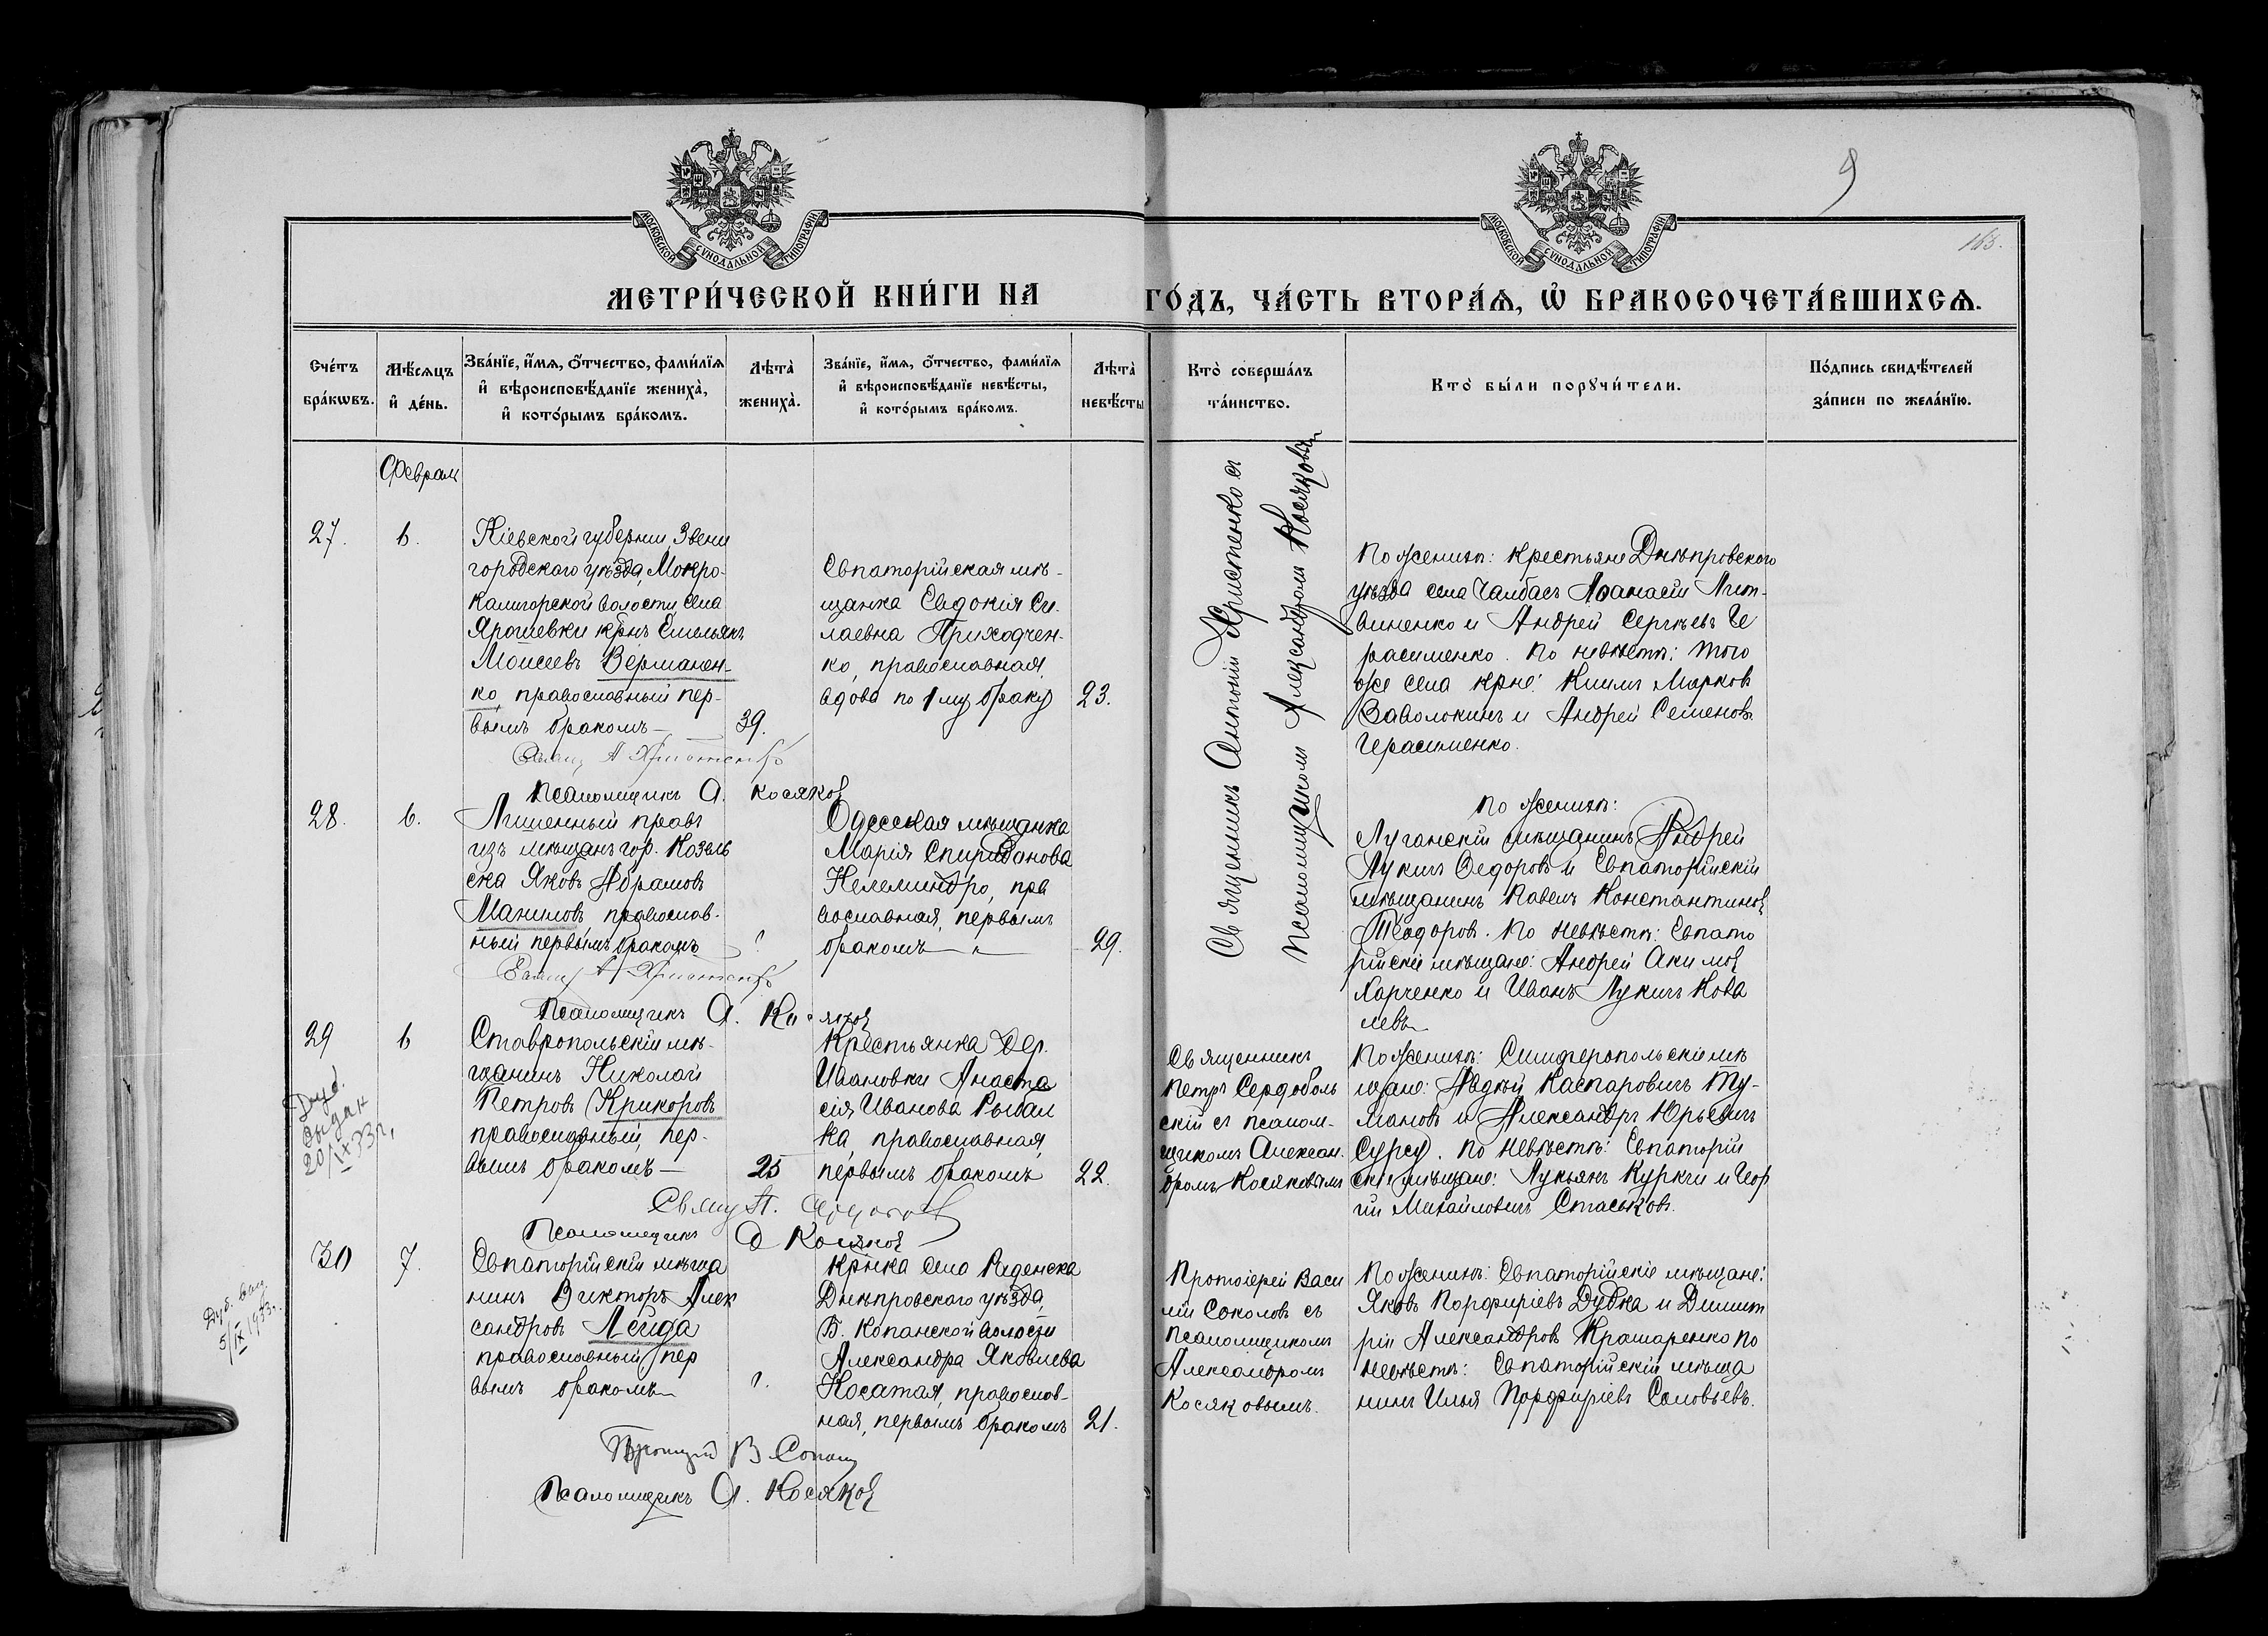 9
163.
МОСКОВСКОЙ СѴНОДАЛЬНОЙ ТИПОГРАФІИ
МОСКОВСКОЙ СѴНОДАЛЬНОЙ ТИПОГРАФІИ
МЕТРИ́ЧЕСКОЙ КНИ́ГИ НА ГО́ДЪ, ЧА́СТЬ ВТОРА́Ѧ, Ѽ БРАКОСОЧЕТА́ВШИХСѦ.
Сче́тъ
бра́кѡвъ.
Мѣ́сѧцъ
и҆ де́нь.
Зва́нїе, и҆́мѧ, ѻ҆́тчество, фами́лїѧ
и҆ вѣроисповѣ́данїе жениха̀,
и҆ кото́рымъ бра́комъ.
Лѣта̀
жениха̀.
Зва́нїе, и҆́мѧ, ѻ҆́тчество, фами́лїѧ
и҆ вѣроисповѣ́данїе невѣ́сты,
и҆ кото́рымъ бра́комъ.
Лѣта̀
невѣ́сты
Кто̀ соверша́лъ
та́инство.
Кто̀ бы́ли порꙋчи́тели.
По́дпись свидѣ́телей
за́писи по жела́нїю.
Феврал
27.
6.
Кіевской губерніи Звени
городского уѣзда, Мокро-
калигорской волости, села
Ярошевки крнъ Емельянъ
Моисеевъ Верманен-
ко, православный, пер-
вымъ бракомъ —
39.
Евпаторійская мѣ-
щанка Евдокія Си-
лаевна Приходчен-
ко, православная,
вдова по 1му браку
23.
Священникъ Антоній Христенко съ
псаломщикомъ Александромъ Косяковымъ
По женихѣ: крестьяне Днѣпровскаго
уѣзда села Чалбасъ Аѳанасій Лит-
виненко и Андрей Сергѣевъ Ге
расименко. По невѣстѣ: того
же села крне: Климъ Марковъ
Заволокинъ и Андрей Семеновъ
Герасименко.
Свящ А Христенко
Псаломщикъ А. Косяков
28.
6.
Лишенный правъ
изъ мѣщанъ гор. Козель
ска Яковъ Абрамовъ
Макиловъ, православ-
ный первымъ бракомъ
?
Одесская мѣщанка
Марія Спиридонова
Келеминдро, пра
вославная, первымъ
бракомъ — "
29.
По женихѣ:
Луганскій мѣщанинъ Андрей
Лукичъ Ѳедоровъ и Евпаторійскій
мѣщанинъ Павелъ Константиновъ
Теодоровъ. По невѣстѣ: Евпато
рійскіе мѣщане: Андрей Акимовъ
Харченко и Иванъ Лукичъ Кова
левъ
Свящ А Христенко
Псаломщикъ А. Косяков
29
6
Дуб.
выдан
20/IX 33г.
Ставропольскій мѣ-
щанинъ Николай
Петровъ Крикоровъ
православный, пер-
вымъ бракомъ —
25
Крестьянка дер.
Ивановки Анаста
сія Иванова Рыбал
ка, православная,
первымъ бракомъ
22.
Священникъ
Петръ Сердоболь
скій съ псалом-
щикомъ Алексан.
дромъ Косяковымъ
По женихѣ: Симферопольскіе мѣ
щане: Авдѣй Каспаровичъ Ту-
мановъ и Александръ Юрьевичъ
Сурсу. По невѣстѣ: Евпаторій
скіе мѣщане: Лукьянъ Куркчи и Геор
гій Михайловичъ Стаськовъ.
Псаломщикъ А Косяков
30
7.
Дуб. выд.
5/IX 1933г.
Евпаторійскій мѣща
нинъ Викторъ Алек
сандровъ Леида
православный, пер
вымъ бракомъ
?.
Крнка села Раденска
Днѣпровскаго уѣзда,
Б. Копанской волости
Александра Яковлева
Косатая, православ-
ная, первымъ бракомъ
21.
Протоіерей Васи
лій Соколовъ съ
псаломщикомъ
Александромъ
Косяковымъ.
По женихѣ: Евпаторійскіе мѣщане:
Яковъ Порфиріевъ Дубка и Димит
рій Александровъ Крамаренко По
невѣстѣ: Евпаторійскій мѣща
нинъ Илья Порфиріевъ Соловьевъ.
В Сокол
Псаломщикъ А. Косяков